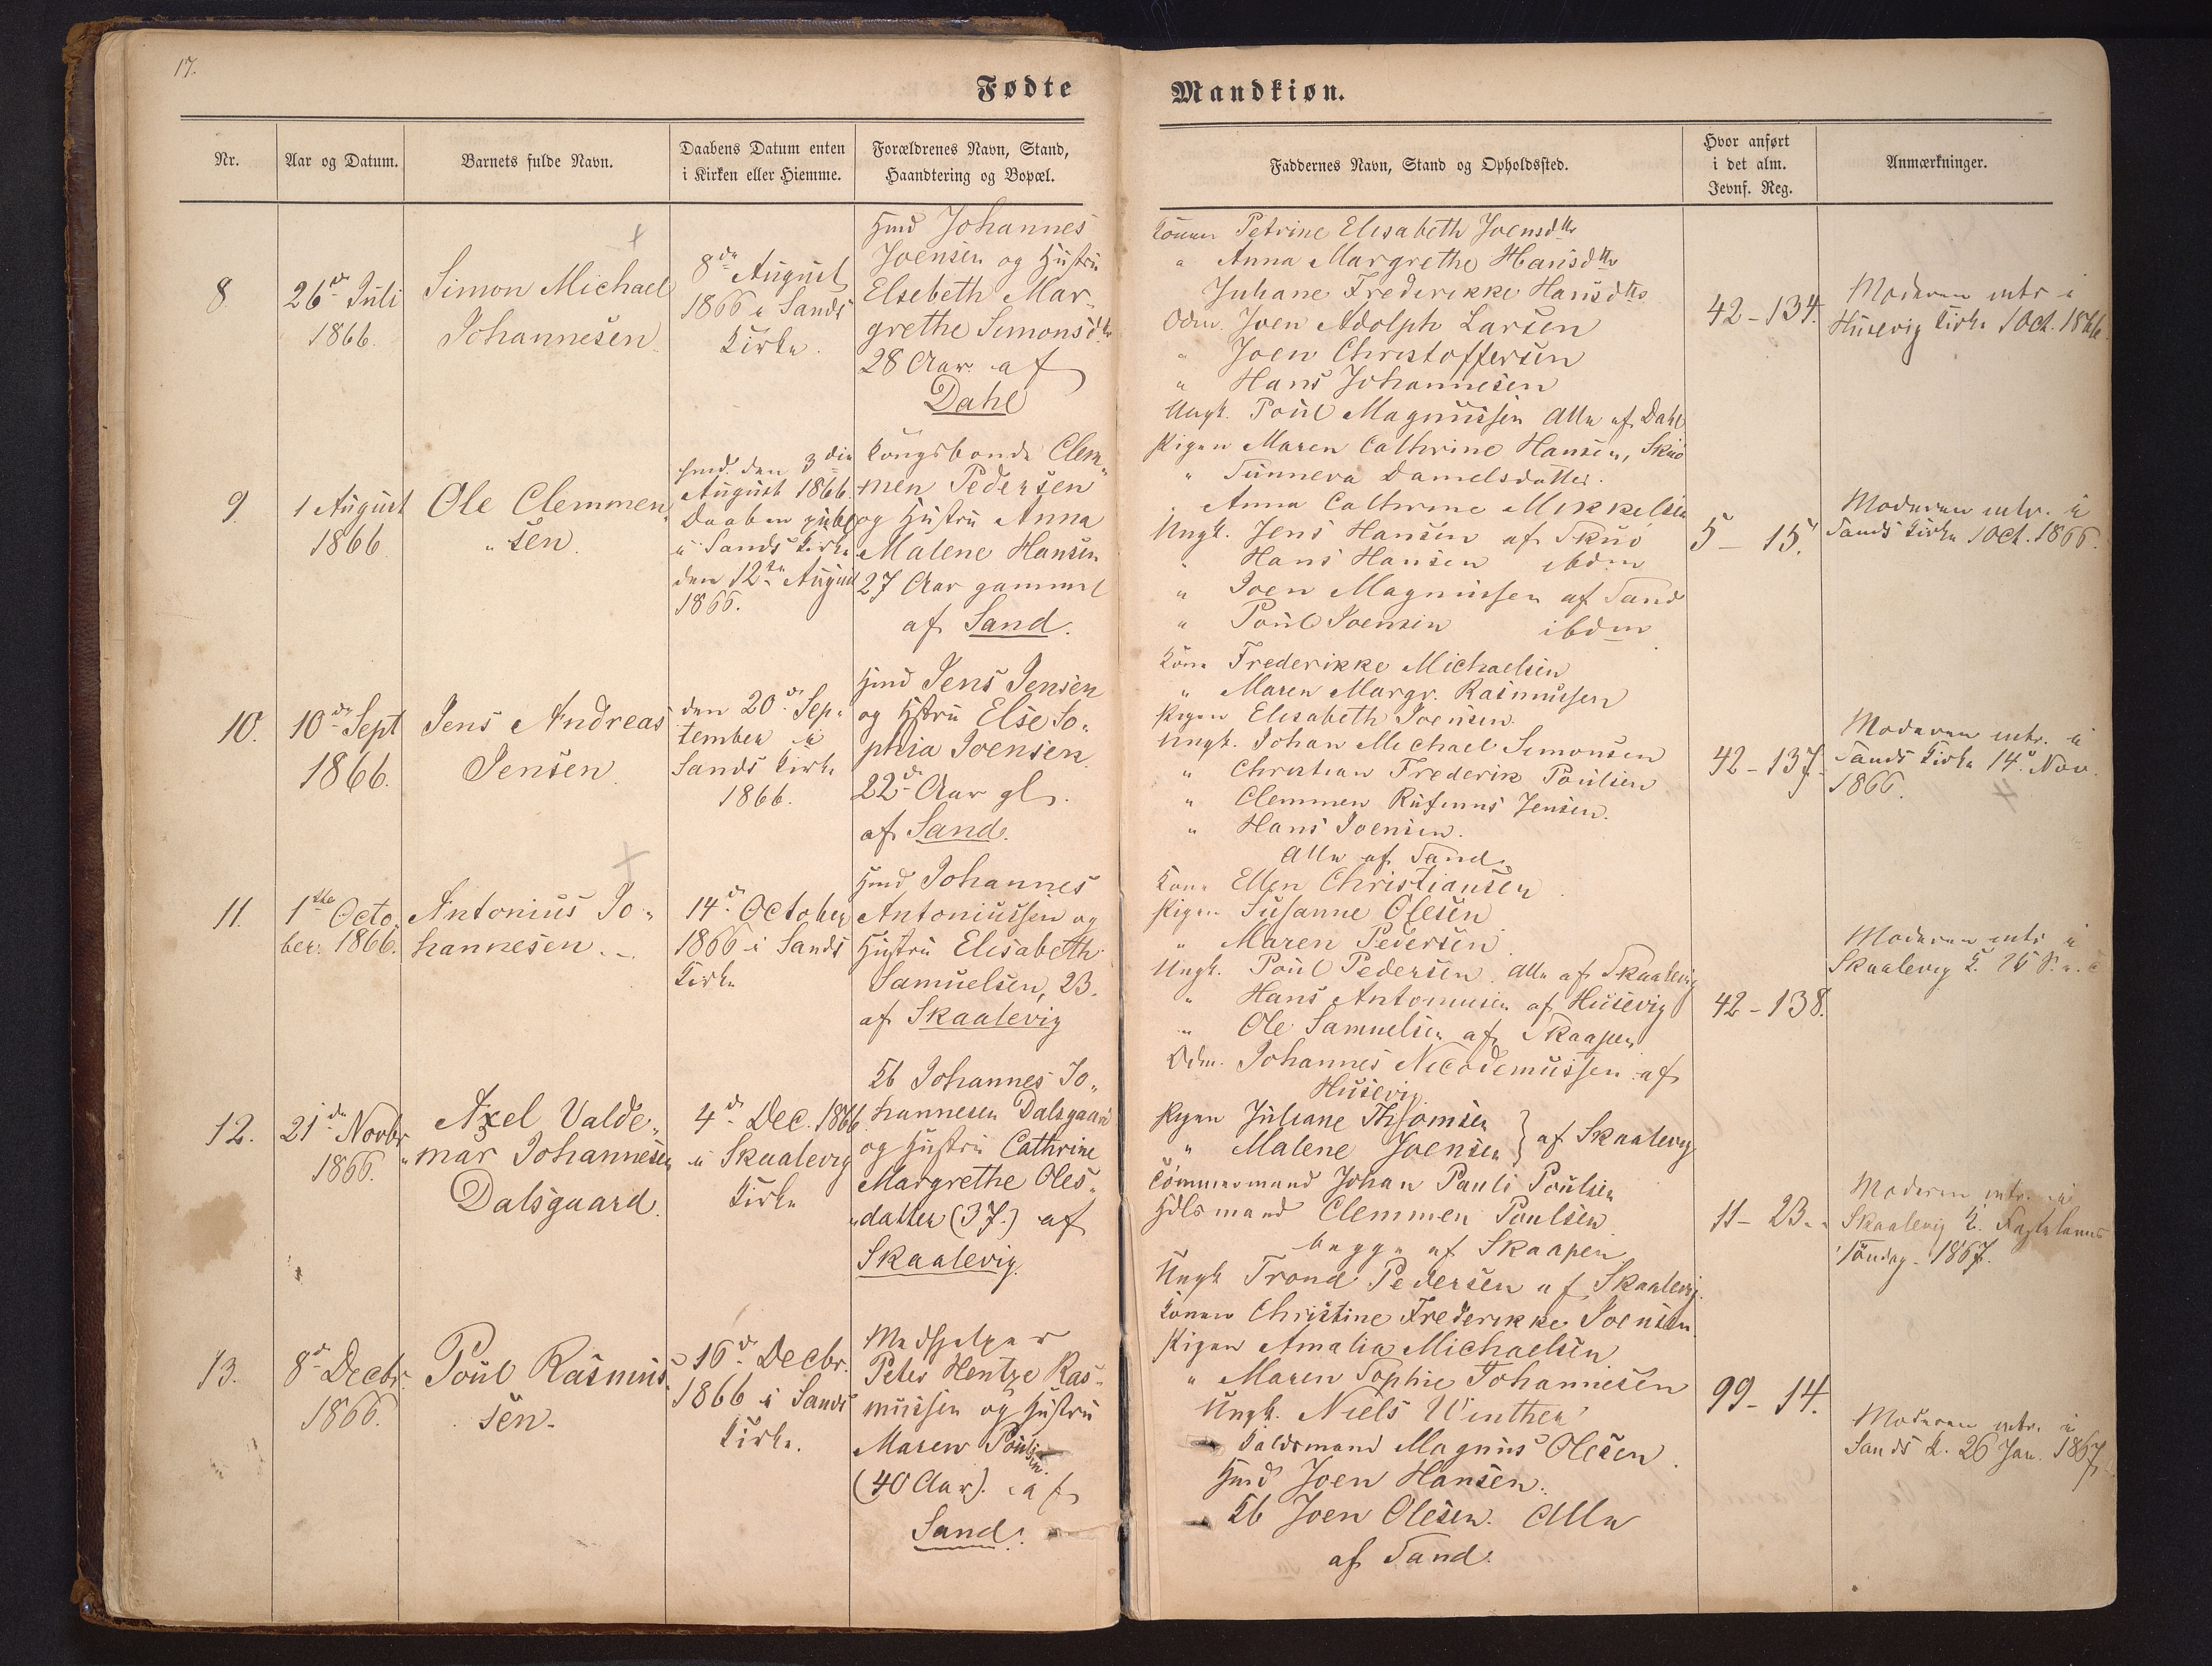 17.
Fødte
Mandkiøn.
Nr.
Aar og Datum.
Barnets fulde Navn.
Daabens Datum enten
i Kirken eller Hiemme.
Forældrenes Navn, Stand,
Haandtering og Bopæl.
Faddernes Navn, Stand og Opholdssted.
Hvor anført
i det alm.
Jevnf. Reg.
Anmærkninger.
8
26de Juli
1866.
Simon Michael
Johannesen
8de August
1866 i Sands
Kirke.
Hmd Johannes
Joensen og Hustru
Elsebeth Mar-
grethe Simonsdtr
28 Aar af
Dahl
Konen Petrine Elisabeth Joensdtr
" Anna Margrethe Hansdtr
Juliane Frederikke Hansdtr
Odm. Joen Adolph Larsen
" Joen Christoffersen
" Hans Johannesen
Ungk. Poul Magnussen Alle af Dahl
42 - 134.
Moderen intr. i
Husevig Kirke 1 Oct. 1866.
9.
1 August
1866
Ole Clemmen-
"sen
hmd. den 3die
August 1866.
Daaben publ
i Sands Kirke
den 12te August
1866.
Kongsbonde Clem-
men Pedersen
og Hustru Anna
Malene Hansen
27 Aar gammel
af Sand.
Pigen Maren Cathrine Hansen, Skuö
" Sunneva Danielsdatter.
" Anna Cathrine Mikkelsen
Ungk. Jens Hansen af Skuö
" Hans Hansen ibdm
" Joen Magnussen af Sand
" Poul Joensen ibdm
5 - 15.
Moderen intr. i
Sands Kirke 1 Oct. 1866.
10.
10de Sept
1866.
Jens Andreas
Jensen.
den 20de Sep-
tember i
Sands Kirke
1866.
Hmd Jens Jensen
og Hstru Else So-
phia Joensen
22de Aar gl.
af Sand.
Kone Frederikke Michaelsen
" Maren Margr. Rasmussen
Pigen Elisabeth Joensen.
Ungk. Johan Michael Simonsen
" Christian Frederik Poulsen
" Clemmen Jensen.
" Hans Joensen.
Alle af Sand.
42 - 137.
Moderen intr. i
Sands Kirke 14de Nov.
1866.
11.
1ste Octo-
ber. 1866.
Antonius Jo-
hannesen.
14de October
1866 i Sands
Kirke
Hmd Johannes
Antoniussen og
Hustru Elisabeth
Samuelsen, 23.
af Skaalevig
Kone Ellen Christiansen
Pigen Susanne Olesen
" Maren Pedersen
Ungk. Poul Pedersen Alle af Skaalevig
" Hans Antoniusen af Husevig
" Ole Samuelsen af Skaapen
Odm. Johannes Nicodemussen af
Husevig.
42 - 138.
Moderen intr i
Skaalevig K.
12.
21de Novbr
1866.
Axel Valde-
"mar Johannesen
Dalsgaard.
4de Dec. 1866
i Skaalevig
Kirke
Kb Johannes Jo-
hannesen Dalsgaard
og Hustru Cathrine
Margrethe Oles-
"datter (37.) af
Skaalevig.
Pigen Juliane Thomsen
" Malene Joensen } af Skaalevig
Tömmermand Johan Pauli Poulsen
Hdlsmand Clemmen Poulsen
begge af Skaapen
Ungk Trond Pedersen af Skaalevig.
11 - 23.
Moderen intr. i
Skaalevig K. Fastelavns
Söndag 1867.
13.
8de Decbr.
1866.
Poul Rasmus-
sen.
16de Decbr.
1866 i Sands
Kirke.
Medhjelper
Peter Hentze Ras-
mussen og Hustru
Maren Poulsen.
(40 Aar). af
Sand.
Konen Christine Frederikke Joensen.
Pigen Amalia Michaelsen
" Maren Sophie Johannesen
Ungk. Niels Winther
Magnus Olesen.
Hmd Joen Hansen.
Kb Joen Olesen. Alle
af Sand.
99 - 14.
Moderen intr. i
Sands K. 26 Jan. 1867.